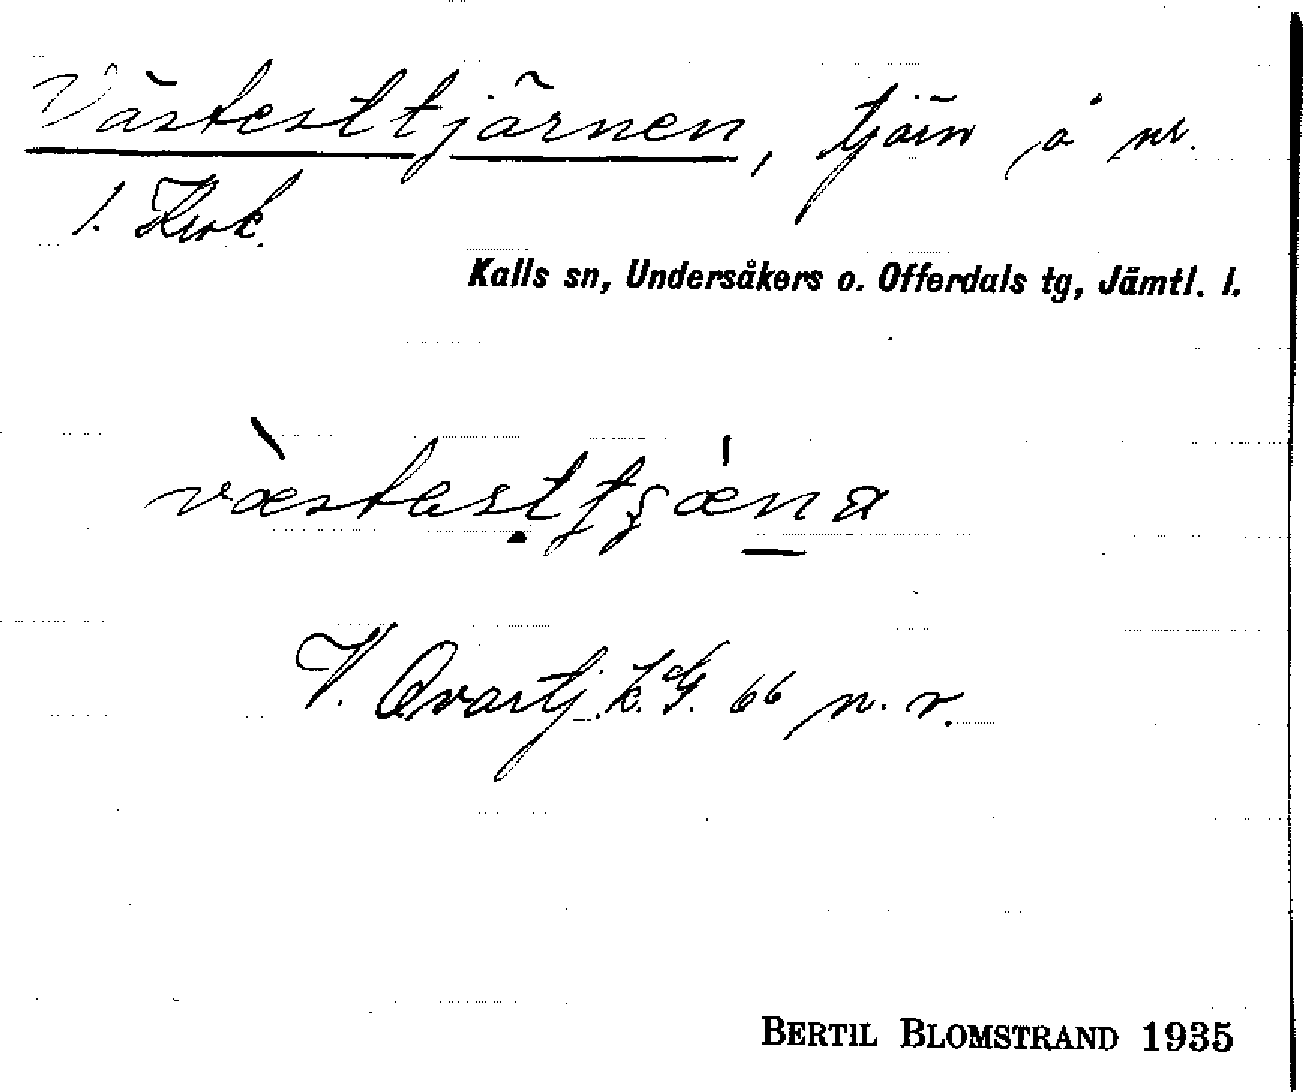 Västesttjärnen, tjärn å nr
1. Kvok.
Kalls sn, Undersåkers o. Offerdals tg, Jämtl. l.
væstesttʂæna
V. Qvartj. k. G. 66 n. v.
BERTIL BLOMSTRAND 1935